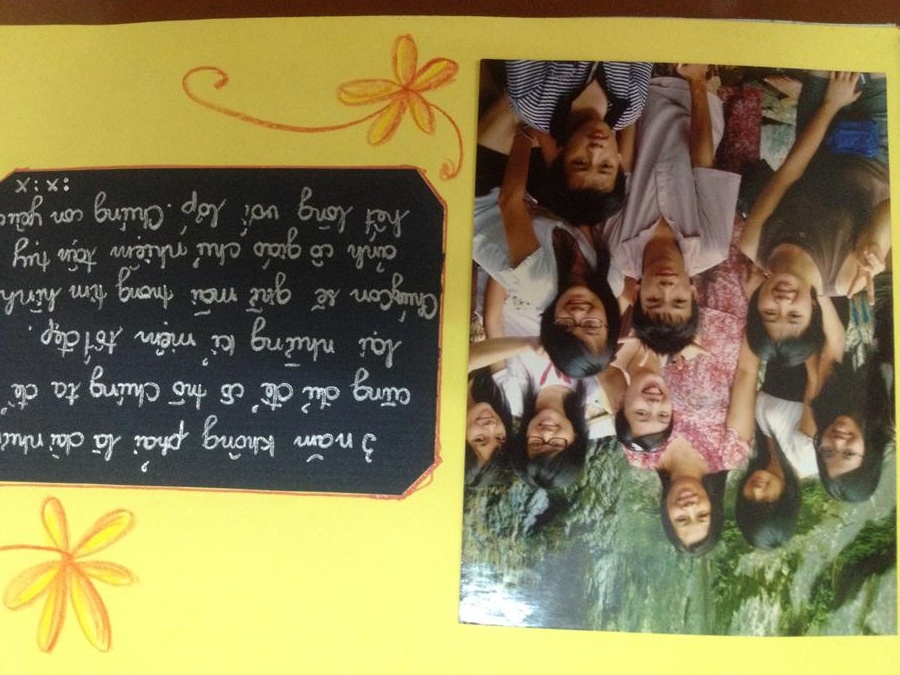 3 năm không phải là dài nhưn
cũng đủ để cô trò chúng ta để
lại những kỉ niệm tốt đẹp.
Chúng con sẽ giữ mãi trong tim hình
ảnh cô giáo chủ nhiệm tận tụy
hết lòng với lớp. Chúng con yêu c
:x :x